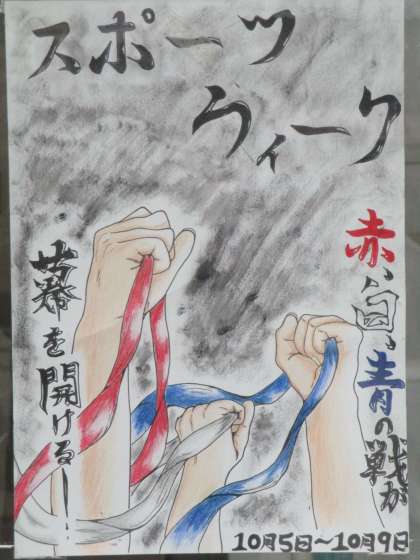 スポーツ
ウィーク
赤、白、青の戦が
幕を開ける！
10月5日～10月9日